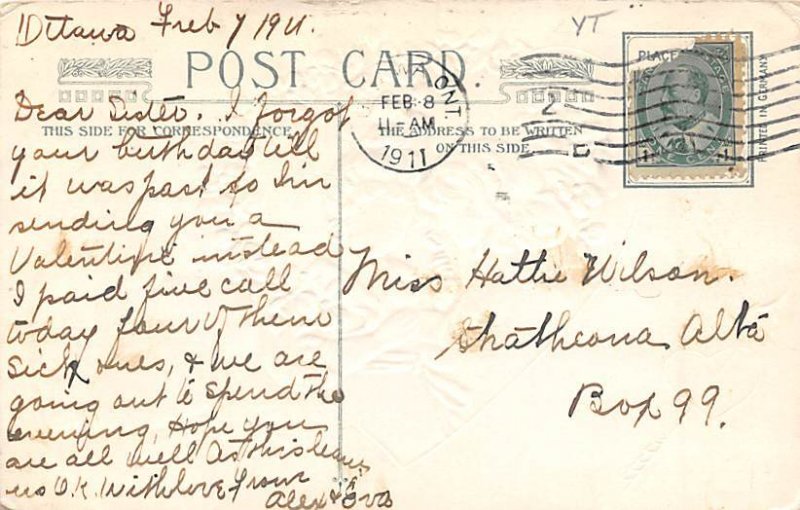 Ottawa Feb 7 1911.
YT
POST CARD.
THIS SIDE FOR CORRESPONDENCE
THE ADDRESS TO BE WRITTEN
ON THIS SIDE
PLACE
PRINTED IN GERMANY
ONT.
FEB 8
11-AM
1911
2
Dear Sister. I forgot
your birthday till
it was past so I'm
sending you a
Valentine instead
I paid five call
today four of them
Sick ones, & we are
going out to spend the
evening, Hope you
are all well As this leaves
us O.K. With love from
Alex & Eva
Miss Hattie Wilson.
Strathcona Alta
Box 99.